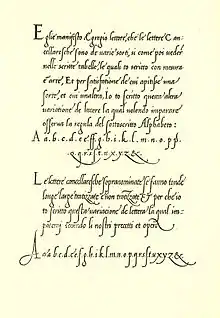 Eglie manifesto Egregio lettore, che le lettere Can-
cellaresche sono de varie sorti, si come poi veder
nelle scritte tabelle, le quali io scritto con mesura
& arte, Et per satisfatione de cui apitisse una
sorte, et cui unaltra, io to scritto questa altra
variatione de lettere la qual volendo imparare
osserva la regula del sottoscritto Alphabeto:
A a.b.c.d.ee.ff.g.h.i.k.l.m.n.o.p.
.q.r.s.t.u.x.y.z.&
Le lettere cancellaresche sopranominate se fanno tonde
longe large tratizzate e non tratizzate Et per che io
to scritto questa variatione de lettera la qual im-
pararai secondo li nostri precetti et opera
A a.b.c.d.e.f.g.h.i.k.l.m.n.o.p.q.r.s.t.u.x.y.z.&